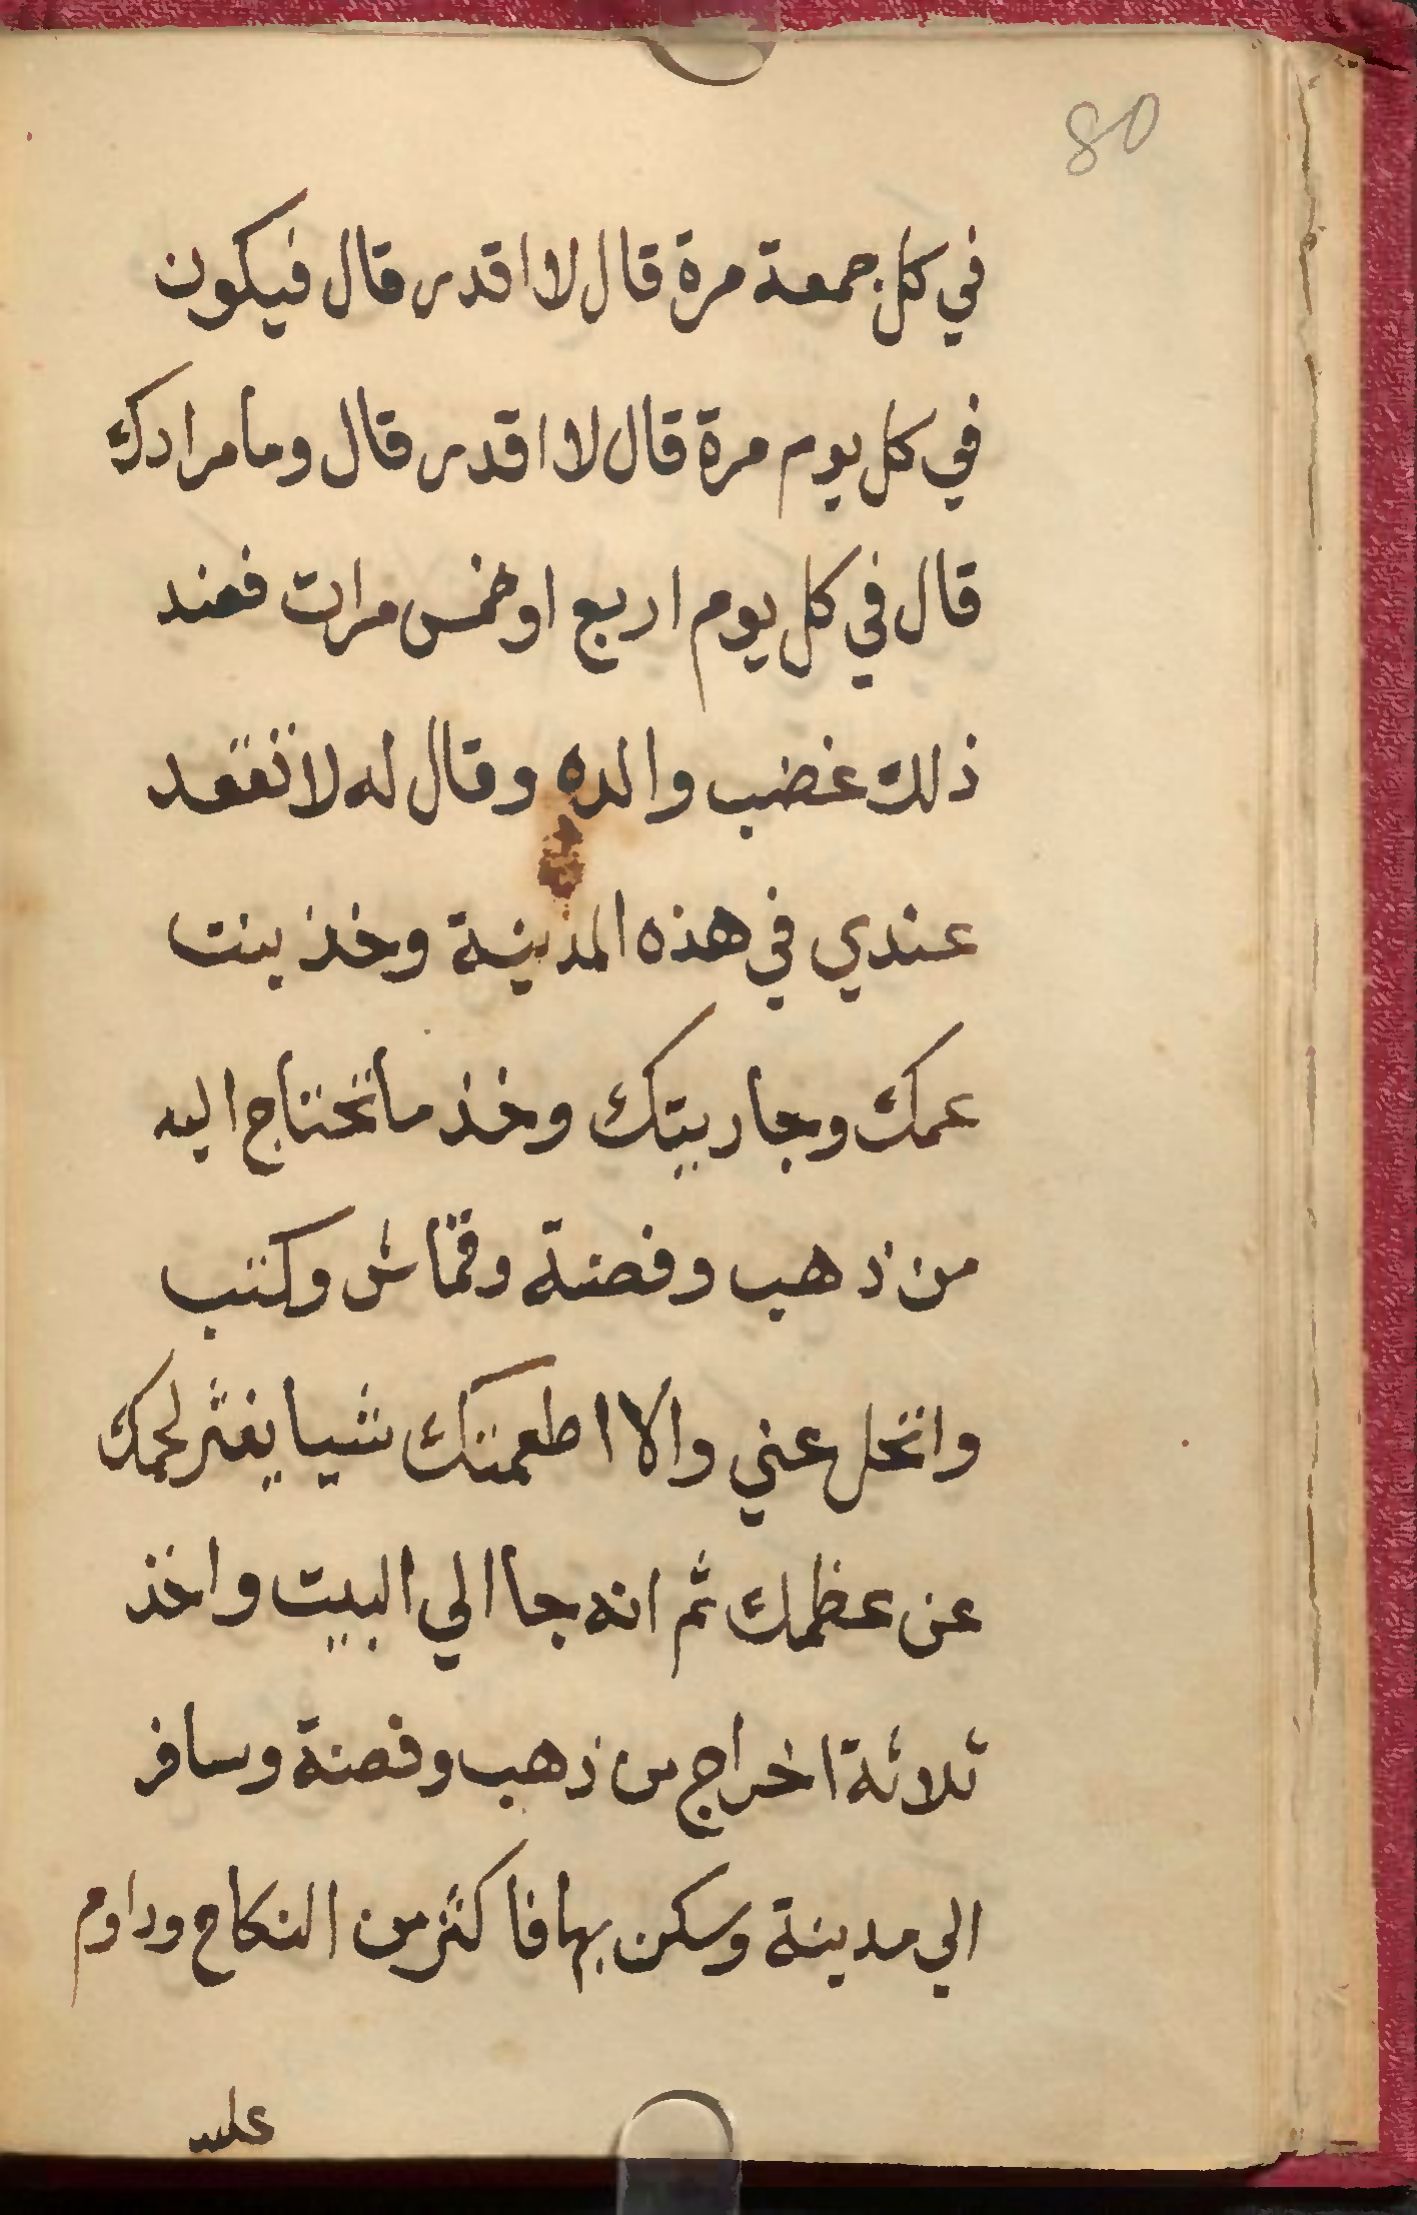 80
في كل جمعة مرة قال لا اقدر قال فيكون
في كل يوم مرة قال لا اقدر قال وما مرادك
قال في كل يوم اربع او خمس مرات فعند
ذلك غضب والده وقال له لا تقعد
عندي في هذه المدينة وخذ بنت
عمك وجاريتك وخذ ما تحتاج اليه
من ذهب وفضة وقماش وكتب
واتخل عني والا اطعمتك شيا يفتر لحمك
عن عظمك ثم انه جا الي البيت واخذ
ثلاثة اخراج من ذهب وفضة وسافر
الي مدينة وسكن بها فاكثر من النكاح وداوم
عليه